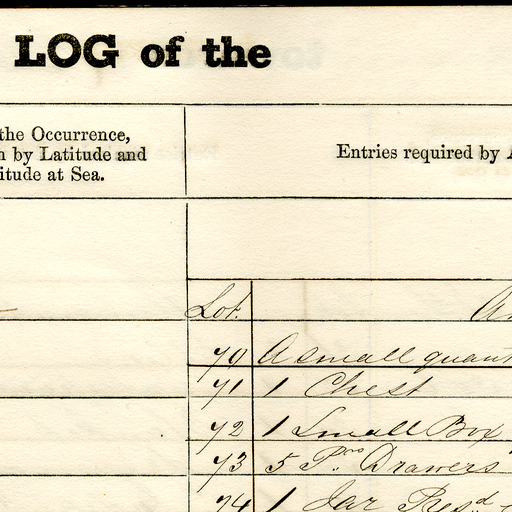 LOG of the
the Occurrence,
n by Latitude and
itude at Sea.
Entries required by A
Lot.
70 A small quant
71 1 Chest
72 1 Small Box
73 5 Prs Drawers
74 1 Jar Presd